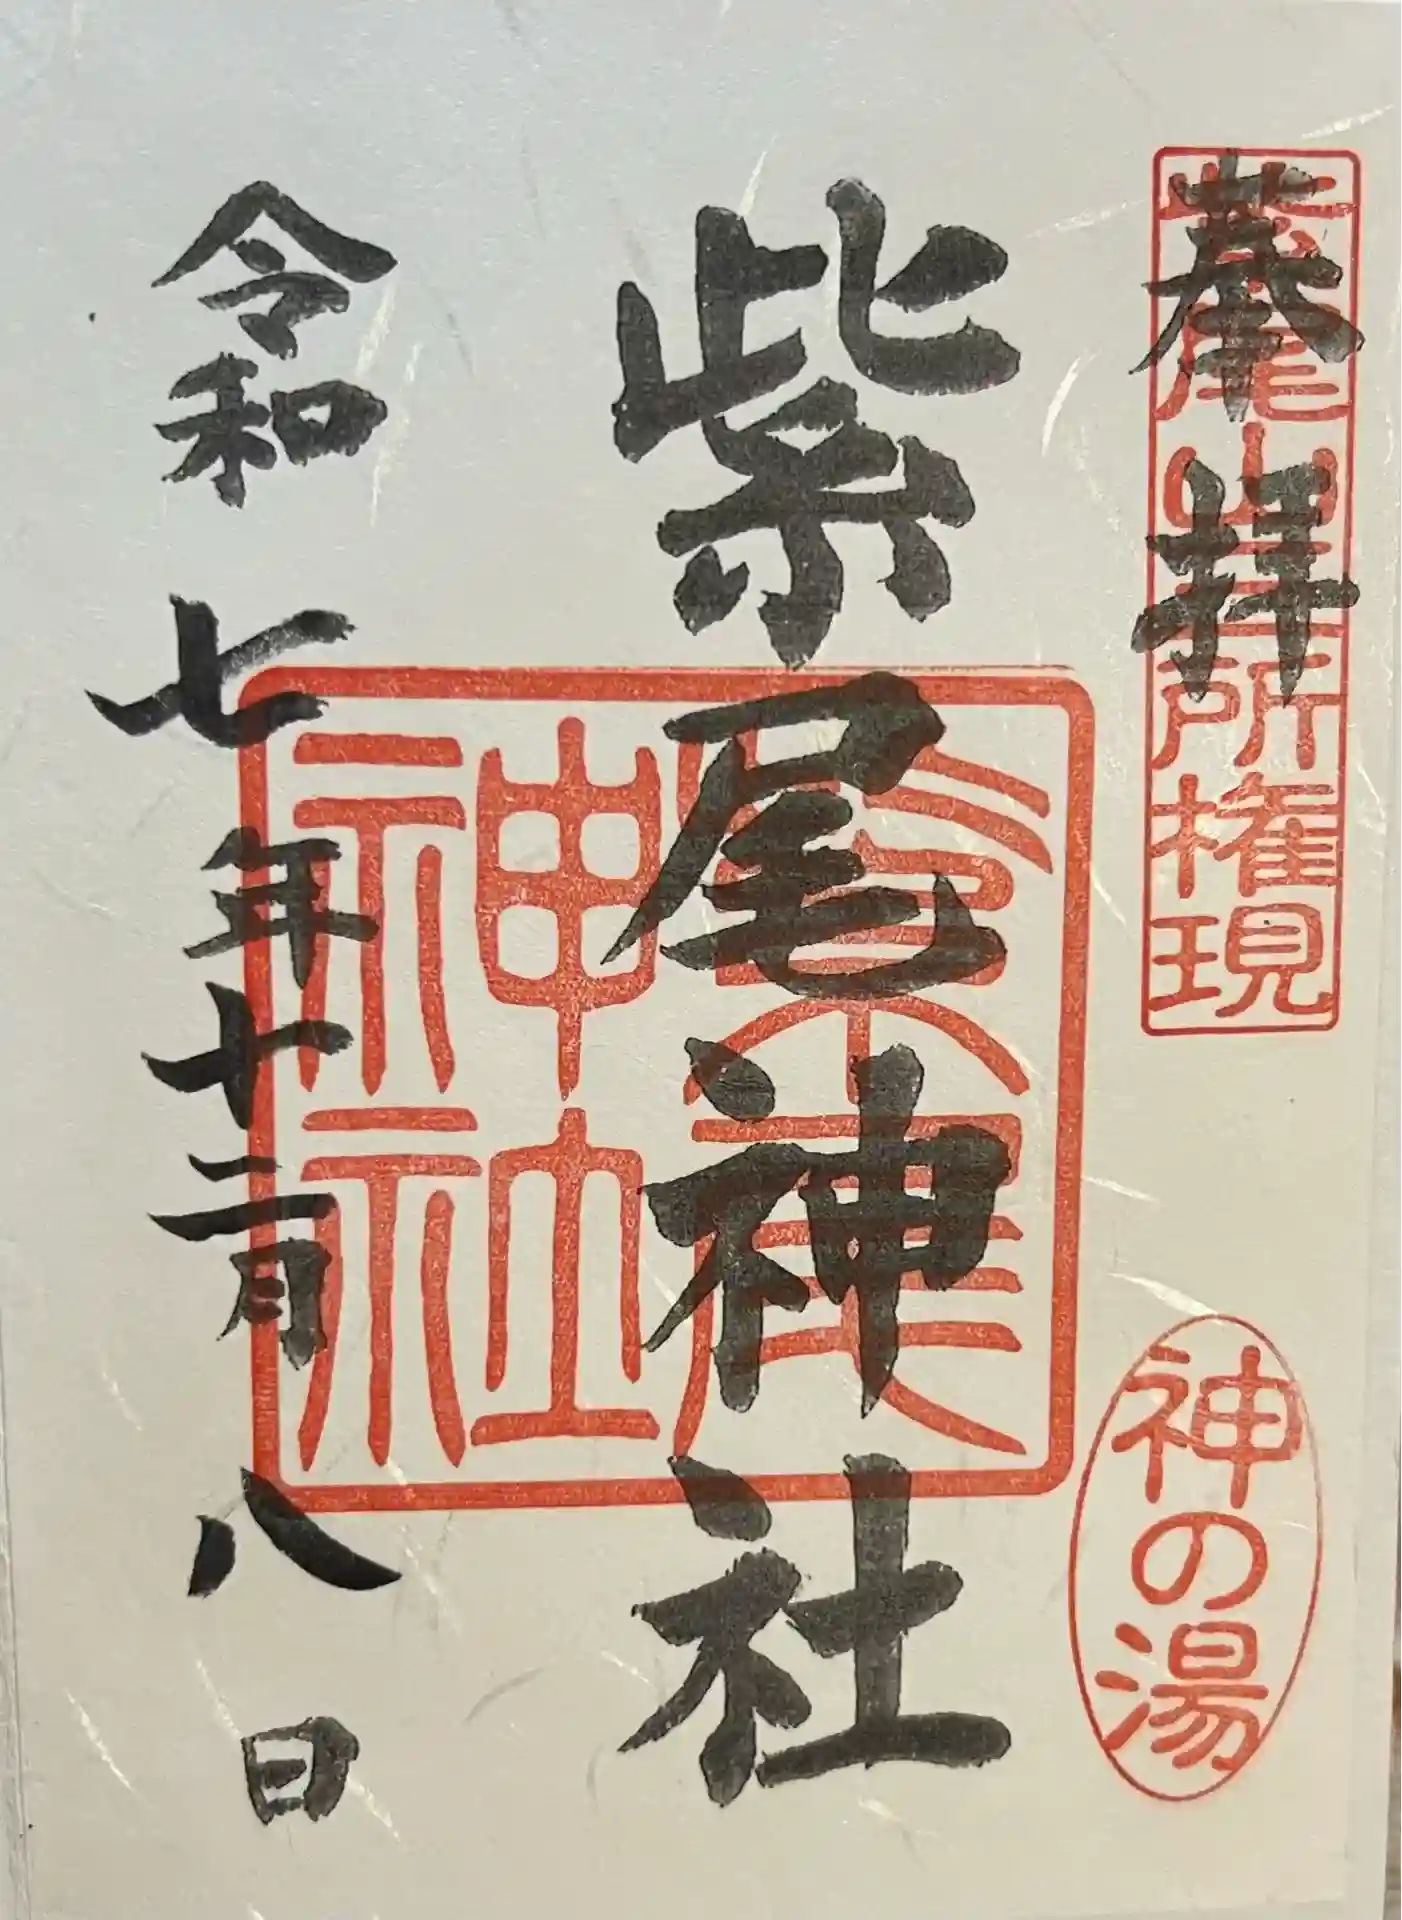 奉拝
紫尾山三所権現
神の湯
紫尾神社
紫尾神社
令和七年十二月八日